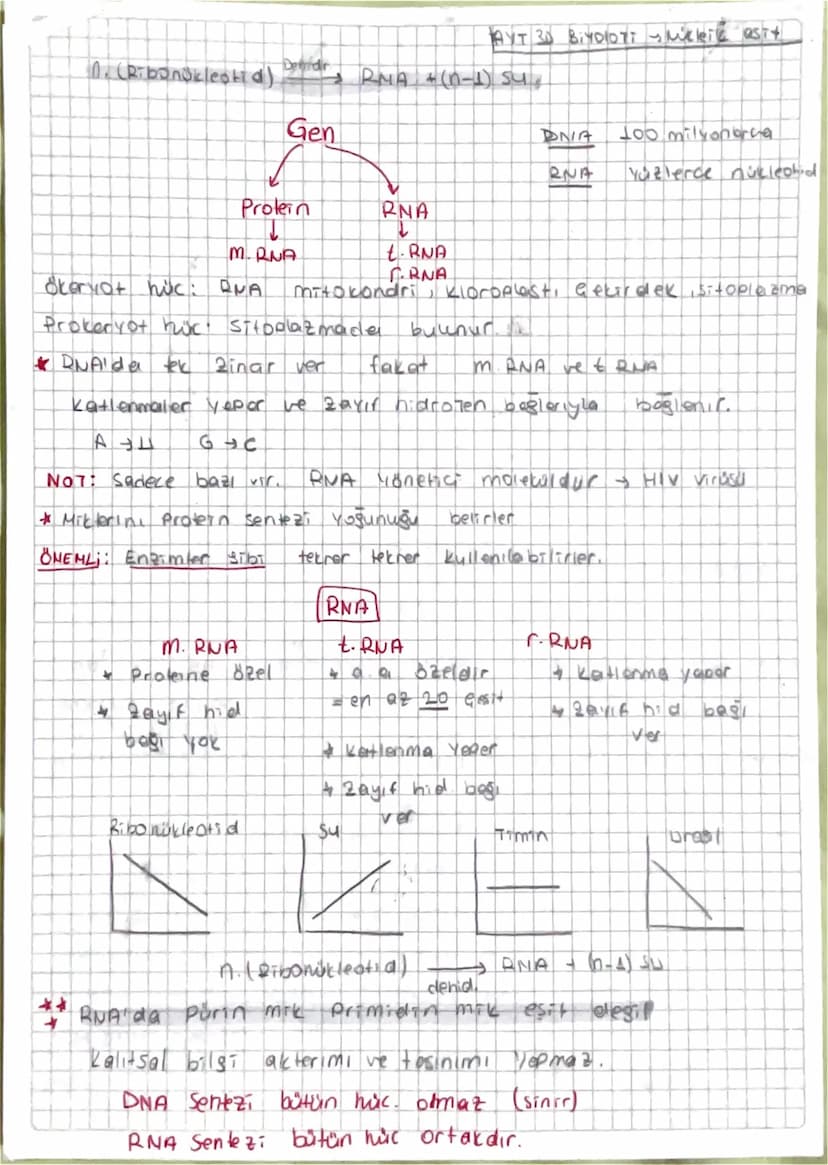 AYT 3D Biyoloji → Nükleik asit
n. (Ribonükleotid) Dehidr → RNA + (n-1) su
Gen
DNA 100 milyonlarca
RNA yüzlerce nükleotid
Protein RNA
m. RNA t. RNA
r. RNA
Ökaryot hüc: RNA mitokondri, kloroplastı, çekirdek, sitoplazma
Prokaryot hüc: sitoplazmada bulunur.
* RNA'da tek zincir var fakat m RNA ve t RNA
katlanmalar yapar ve zayıf hidrojen bağlarıyla bağlanır.
A → U G → C
NOT: Sadece bazı vir. RNA yönetici moleküldür → HIV virüsü
* Miktarını protein sentezi yoğunuğu belirler
ÖNEMLİ: Enzimler gibi tekrar tekrar kullanılabilirler.
RNA
m. RNA t. RNA r. RNA
* Proteine özel * a.a özeldir * Katlanma yapar
= en az 20 çeşit
* Zayıf hid bağı yok * Zayıf hid bağı var
* Katlanma yapar
* Zayıf hid. bağı var
Ribonükleotid Su Timin Urasil
n. (Ribonükleotid) → RNA + (n-1) su
dehid.
*** RNA'da pürin mik primidin mik eşit değil
Kalıtsal bilgi aktarımı ve taşınımı yapmaz.
DNA sentezi bütün hüc. olmaz (sinir)
RNA sentezi bütün hüc ortakdır.